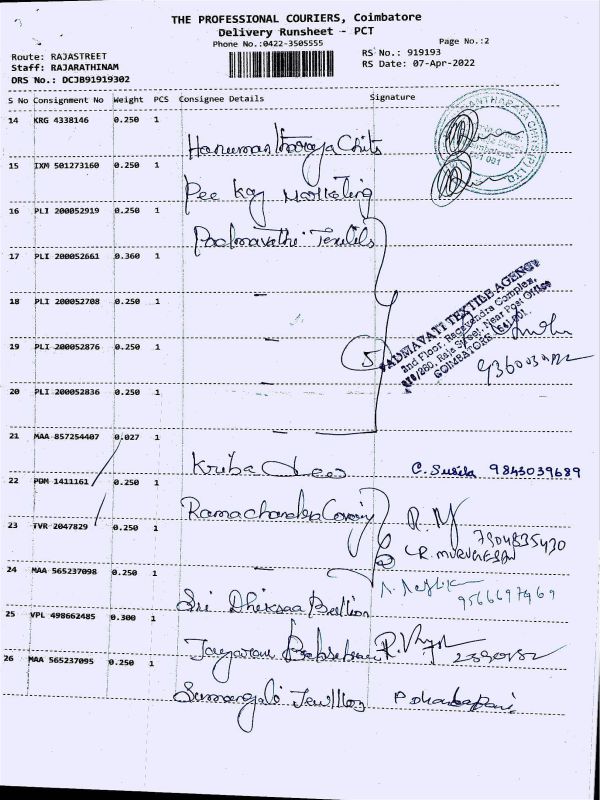 THE PROFESSIONAL COURIERS, Coimbatore
Delivery Runsheet - PCT
Phone No.:0422-3505555
Page No.:2
Route: RAJASTREET
RS No.: 919193
Staff: RAJARATHINAM
RS Date: 07-Apr-2022
DRS No.: DCJB91919302
S No Consignment No Weight PCS Consignee Details Signature
14 KRG 4338146 0.250 1
15 IXM 501273160 0.250 1
Pee Kay Marketing
16 PLI 200052919 0.250 1
Padmavathi Textiles
17 PLI 200052661 0.360 1
18 PLI 200052708 0.250 1
PADMAVATI TEXTILE AGENCY
2nd Floor, Ragavendra Complex,
Raja Street, Near Post Office
COIMBATORE
19 PLI 200052876 0.250 1
5
20 PLI 200052836 0.250 1
21 MAA 857254407 0.027 1
C. Susila 9843039689
22 PDM 1411161 0.250 1
23 TVR 2047829 0.250 1
7904835430
R. MURUGESAN
24 MAA 565237098 0.250 1
Sri Dheksaa Bullion
9566697469
25 VPL 498662485 0.300 1
26 MAA 565237095 0.250 1